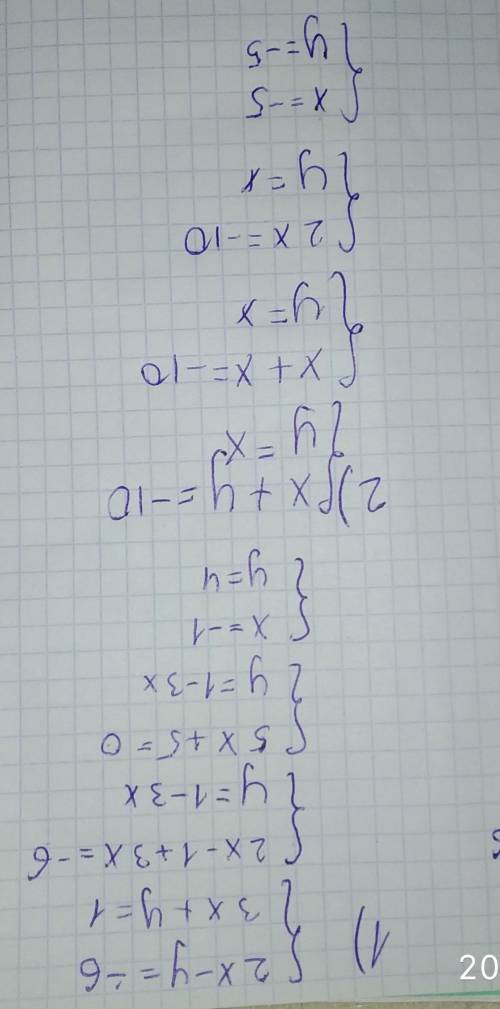 1) { 2x-y=-6
{ 3x+y=1
{ 2x-1+3x=-6
{ y=1-3x
{ 5x+5=0
{ y=1-3x
{ x=-1
{ y=4
2) { x+y=-10
{ y=x
{ x+x=-10
{ y=x
{ 2x=-10
{ y=x
{ x=-5
{ y=-5
20